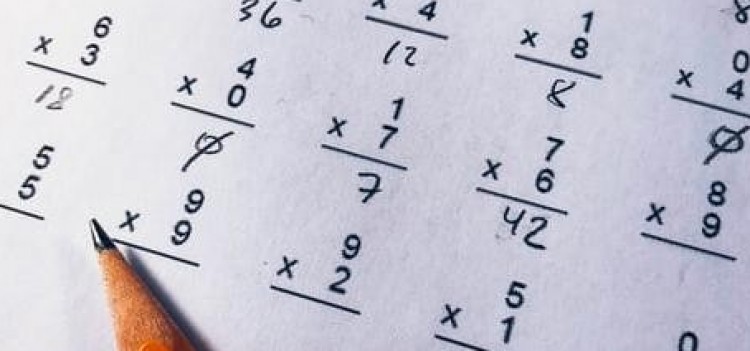 36
x 4
12
6
x 3
18
4
x 0
0
1
x 8
8
0
x 4
0
1
x 7
7
7
x 6
42
5
5
9
x 9
8
x 9
9
x 2
5
x 1
0